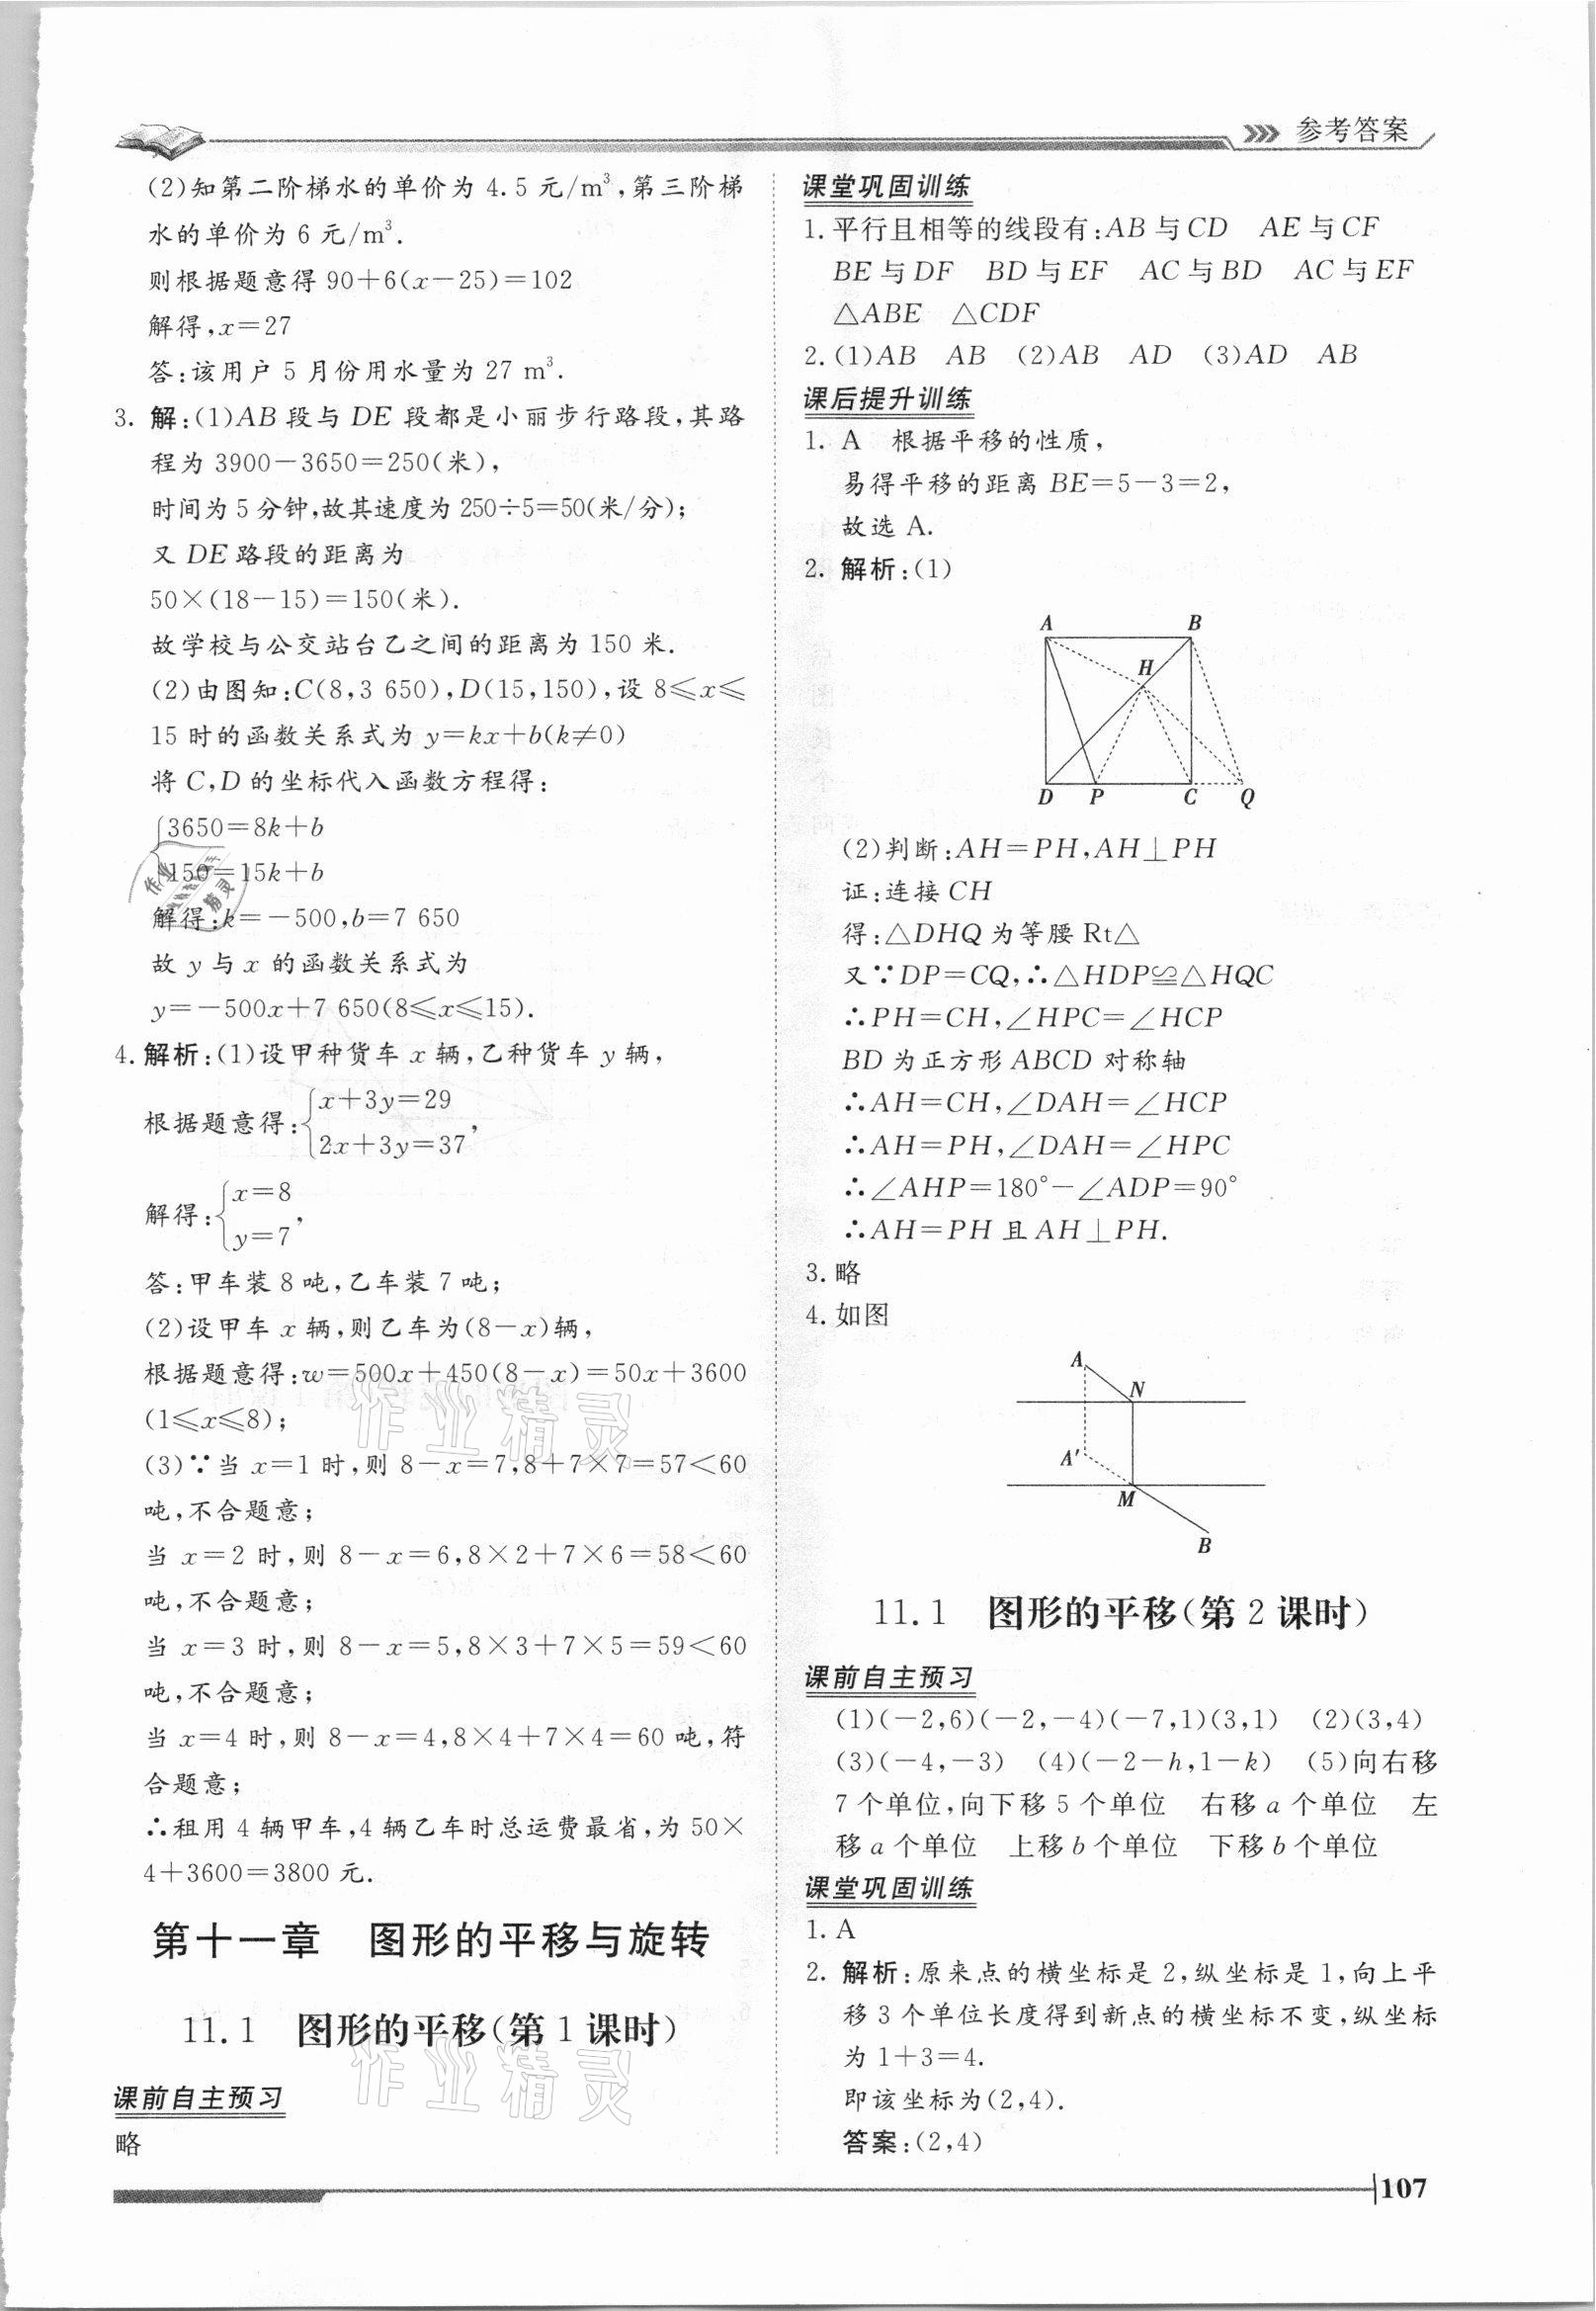 参考答案
(2)知第二阶梯水的单价为 4.5 元/m³,第三阶梯
水的单价为 6 元/m³.
则根据题意得 90+6(x-25)=102
解得,x=27
答:该用户 5 月份用水量为 27 m³.
3. 解:(1)AB 段与 DE 段都是小丽步行路段,其路
程为 3900-3650=250(米),
时间为 5 分钟,故其速度为 250÷5=50(米/分);
又 DE 路段的距离为
50×(18-15)=150(米).
故学校与公交站台乙之间的距离为 150 米.
(2)由图知:C(8,3 650),D(15,150),设 8≤x≤
15 时的函数关系式为 y=kx+b(k≠0)
将 C,D 的坐标代入函数方程得:
3650=8k+b
150=15k+b
解得:k=-500,b=7 650
故 y 与 x 的函数关系式为
y=-500x+7 650(8≤x≤15).
4. 解析:(1)设甲种货车 x 辆,乙种货车 y 辆,
根据题意得:{x+3y=29
2x+3y=37,
解得:{x=8
y=7,
答:甲车装 8 吨,乙车装 7 吨;
(2)设甲车 x 辆,则乙车为(8-x)辆,
根据题意得:w=500x+450(8-x)=50x+3600
(1≤x≤8);
(3)∵当 x=1 时,则 8-x=7,8+7×7=57<60
吨,不合题意;
当 x=2 时,则 8-x=6,8×2+7×6=58<60
吨,不合题意;
当 x=3 时,则 8-x=5,8×3+7×5=59<60
吨,不合题意;
当 x=4 时,则 8-x=4,8×4+7×4=60 吨,符
合题意;
∴租用 4 辆甲车,4 辆乙车时总运费最省,为 50×
4+3600=3800 元.
第十一章 图形的平移与旋转
11.1 图形的平移(第 1 课时)
课前自主预习
略
课堂巩固训练
1. 平行且相等的线段有:AB 与 CD AE 与 CF
BE 与 DF BD 与 EF AC 与 BD AC 与 EF
△ABE △CDF
2. (1)AB AB (2)AB AD (3)AD AB
课后提升训练
1. A 根据平移的性质,
易得平移的距离 BE=5-3=2,
故选 A.
2. 解析:(1)
A B
H
D P C Q
(2)判断:AH=PH,AH⊥PH
证:连接 CH
得:△DHQ 为等腰 Rt△
又∵DP=CQ,∴△HDP≌△HQC
∴PH=CH,∠HPC=∠HCP
BD 为正方形 ABCD 对称轴
∴AH=CH,∠DAH=∠HCP
∴AH=PH,∠DAH=∠HPC
∴∠AHP=180°-∠ADP=90°
∴AH=PH 且 AH⊥PH.
3. 略
4. 如图
A
N
A'
M
B
11.1 图形的平移(第 2 课时)
课前自主预习
(1)(-2,6)(-2,-4)(-7,1)(3,1) (2)(3,4)
(3)(-4,-3) (4)(-2-h,1-k) (5)向右移
7 个单位,向下移 5 个单位 右移 a 个单位 左
移 a 个单位 上移 b 个单位 下移 b 个单位
课堂巩固训练
1. A
2. 解析:原来点的横坐标是 2,纵坐标是 1,向上平
移 3 个单位长度得到新点的横坐标不变,纵坐标
为 1+3=4.
即该坐标为(2,4).
答案:(2,4)
107
作业精灵
作业精灵
作业精灵